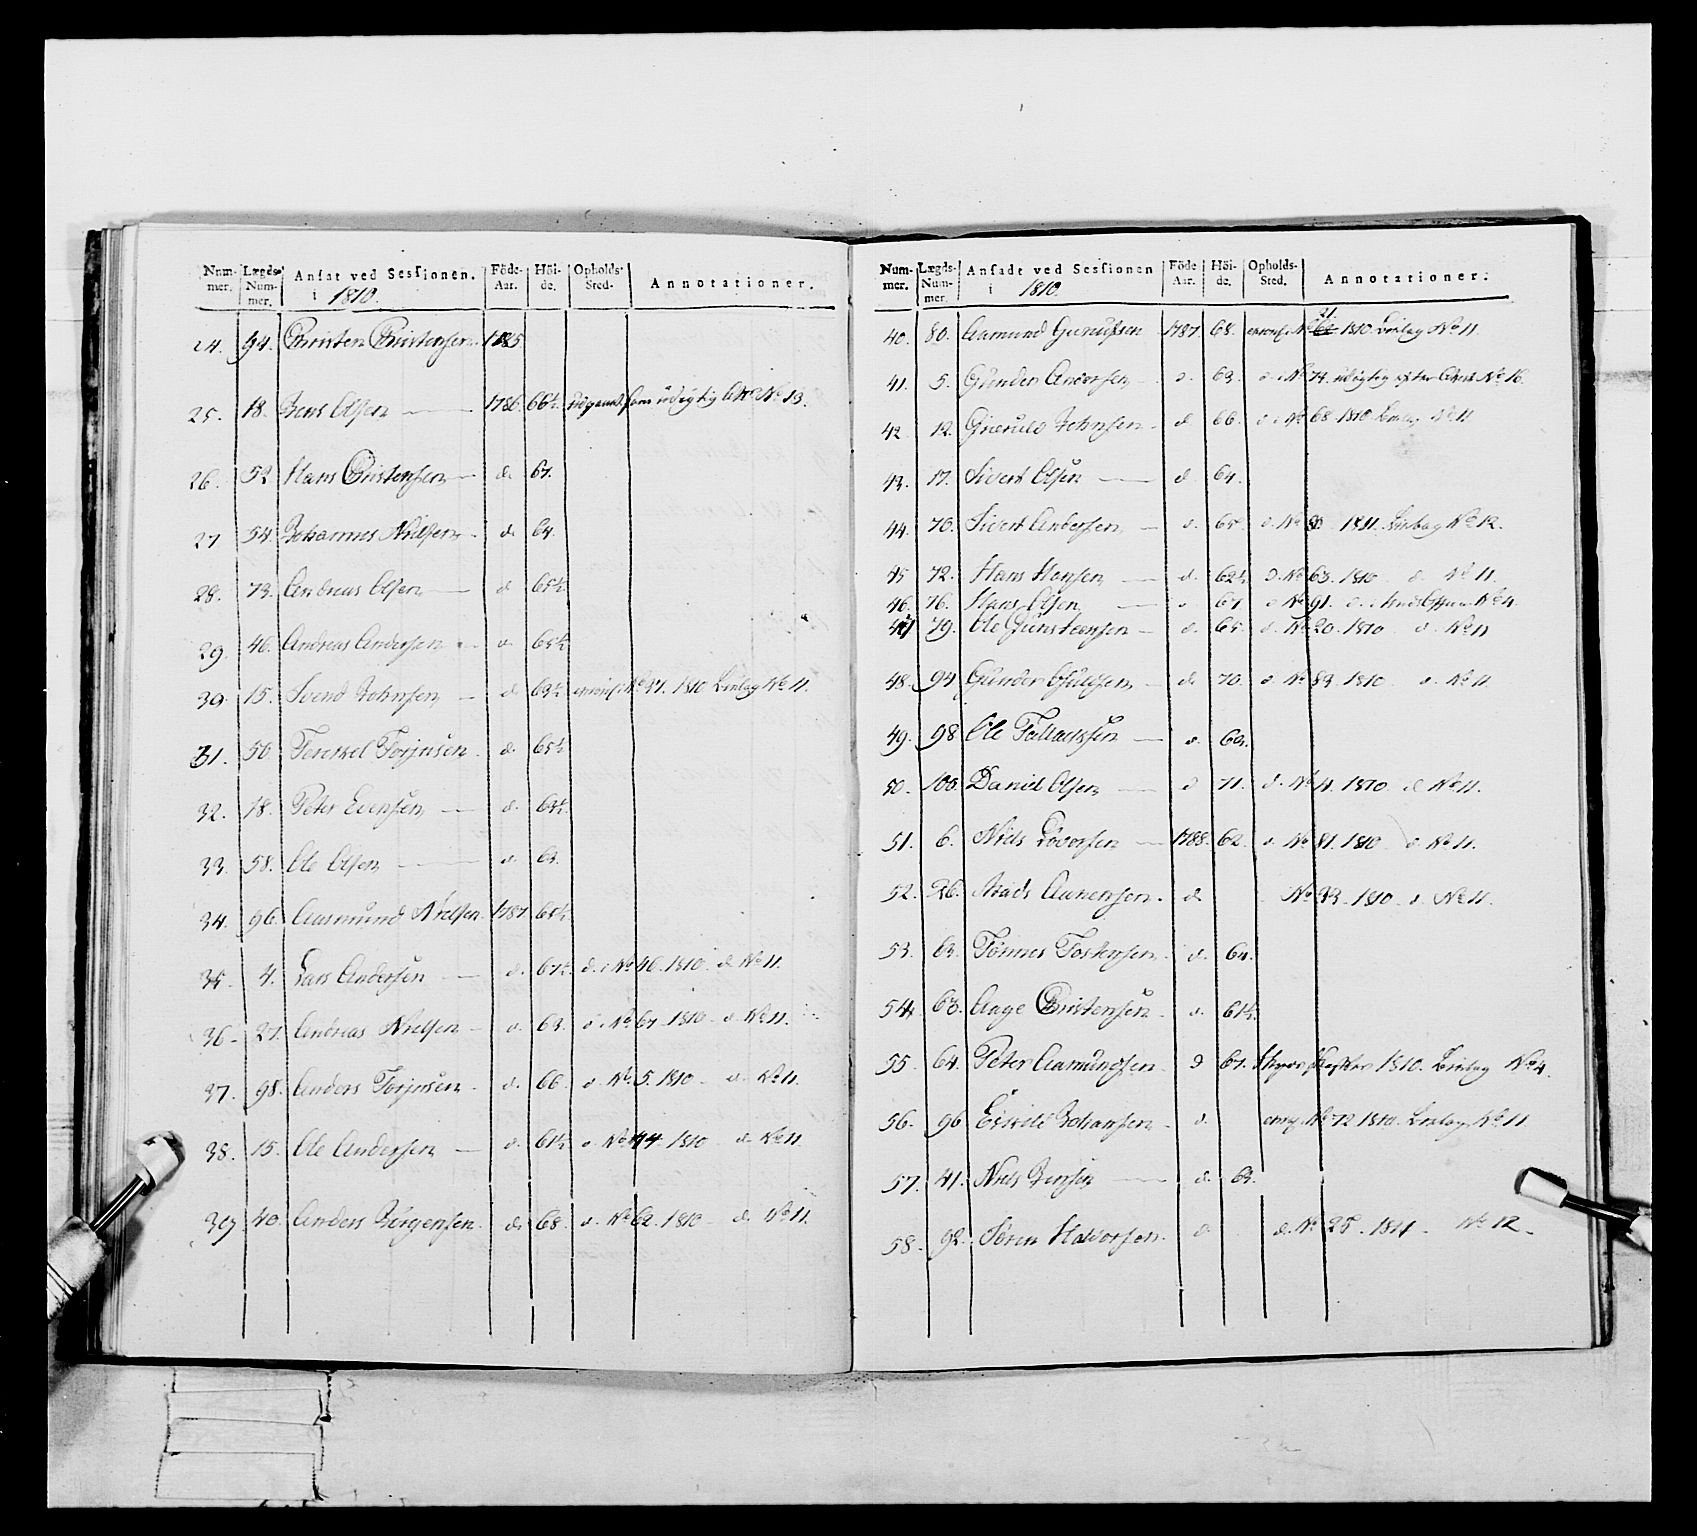 Num- Lægds- Ansat ved Sessionen. Föde- Höi- Opholds- Annotationer.
mer. Num- i 1810. Aar. de. Sted.
mer.
24. 94. Christen Christensen 1785
25. 18. Jens Olsen 1786 66½ som udygtig No 13.
26. 52 Hans Christensen d. 67.
27 54. Johannes Nielsen d. 64.
28. 73. Andreas Olsen d 65½
29. 46. Andreas Andersen d. 65½
30. 15. Svend Johnsen d. 63½ No 37. 1810 No 11.
31. 50 Tereskel Torjusen d. 65½
32. 18. Peter Evensen d. 63½
33. 58. Ole Olsen d. 63.
34. 96. Aasmund Nielsen 1787 65½
35. 4. Lars Andersen d. 67½ d. i No 46. 1810. d. No 11.
36. 27. Andreas Nielsen d. 63. d i No 67. 1810 d No 11.
37. 98. Anders Torjusen d. 66. d No 5. 1810 d. No 11.
38. 15. Ole Andersen d. 61½ d No 44. 1810 d. No 11.
39. 40. Anders Jörgensen d. 68. d. No 62. 1810 d. No 11.
Num- Lægds- Ansadt ved Sessionen Föde Höi- Opholds- Annotationer.
mer. Num- i 1810. Aar. de. Sted.
mer.
40. 80. Aamund 1787. 68. No 21. 1810 No 11.
41. 5. Gunder Andersen d. 63. d i No 74. udygtig efter No 16.
42 12. Gieruld Johnsen d 66. d i No 68. 1810 No 11
43. 17. Sivert Olsen d 64.
44. 70. Sivert Andersen d. 65. d. No 1811. No 12.
45 72. Hans Hansen d. 62½ d. No 63. 1810 d. No 11.
46. 76. Hans Olsen d 67 d No 91. d. No 4.
47 79. Ole Gunsteensen d. 65. d. No 20. 1810 d. No 11
48. 94 Gunder d. 70. d No 83. 1810 d. No 11.
49. 98 Ole d. 62.
50. 100. Daniel Olsen d 71. d. No 4. 1810 d No 11.
51. 6. Niels 1788. 62. d No 81. 1810 d No 11.
52. 26. Mads Aanensen. d. No 33. 1810 d. No 11.
53. 63. Tönnes d. 64.
54. 63. Aage Christensen d. 61½
55. 64. Peter Aamundsen. d 67. 1810. No 4.
56. 96 Eskild Johansen d. No 72 1810. No 11
57. 41. Niels Jensen d. 63.
58. 92. Sören Halvorsen. d d. No 25. 1811 No 12